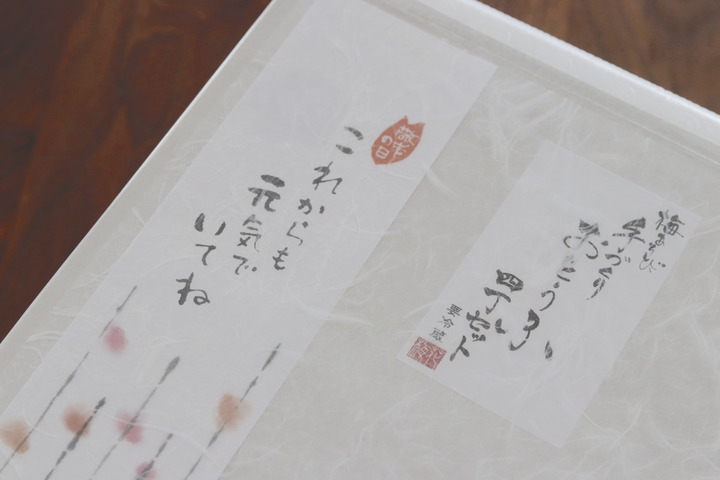 敬老の日
これからも
元気で
いてね
梅あそび
手づくり
おとうふ
四丁セット
要冷蔵